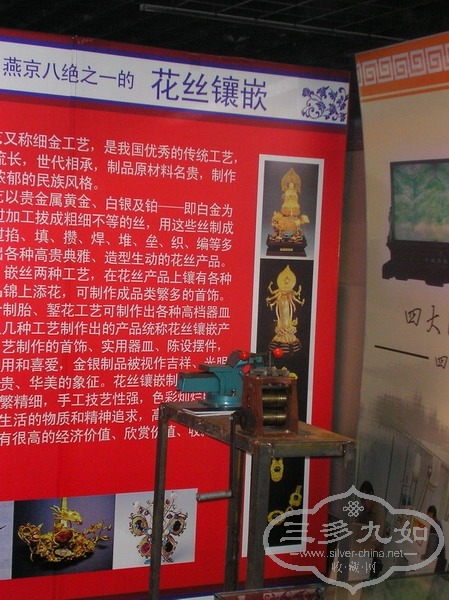 燕京八绝之一的 花丝镶嵌
艺又称细金工艺，是我国优秀的传统工艺，
流长，世代相承，制品原材料名贵，制作
浓郁的民族风格。
艺以贵金属黄金、白银及铂——即白金为
过加工拔成粗细不等的丝，用这些丝制成
过掐、填、攒、焊、堆、垒、织、编等多
出各种高贵典雅、造型生动的花丝产品。
、嵌丝两种工艺，在花丝产品上镶有各种
品锦上添花，可制作成品类繁多的首饰。
制胎、錾花工艺可制作出各种高档器皿
几种工艺制作出的产品统称花丝镶嵌产
艺制作的首饰、实用器皿、陈设摆件，
用和喜爱，金银制品被视作吉祥、光明
贵、华美的象征。花丝镶嵌制
繁精细，手工技艺性强，色彩灿烂
生活的物质和精神追求，高
有很高的经济价值、欣赏价值、收
四大
四
三多九如
www.silver-china.net
收·藏·网